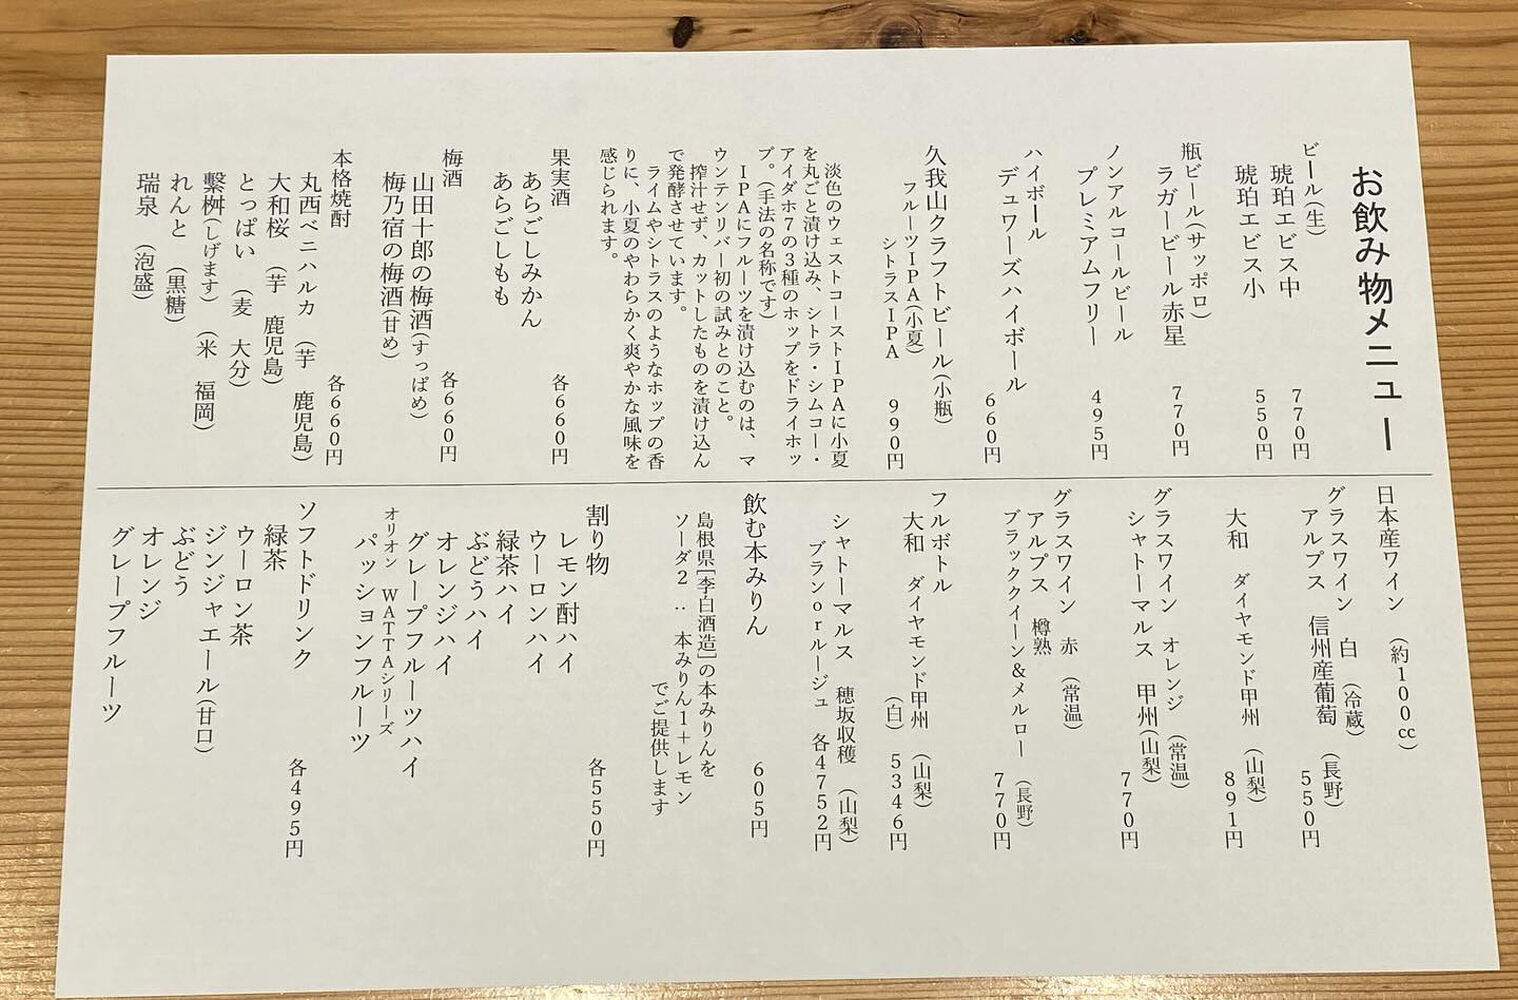 お飲み物メニュー
ビール(生)
琥珀エビス中 770円
琥珀エビス小 550円
瓶ビール(サッポロ)
ラガービール赤星 770円
ノンアルコールビール
プレミアムフリー 495円
ハイボール
デュワーズハイボール 660円
久我山クラフトビール(小瓶)
フルーツIPA(小夏)
シトラスIPA 990円
淡色のウェストコーストIPAに小夏
を丸ごと漬け込み、シトラ・シムコー・
アイダホ7の3種のホップをドライホッ
プ。(手法の名称です)
IPAにフルーツを漬け込むのは、マ
ウンテンリバー初の試みとのこと。
搾汁せず、カットしたものを漬け込ん
で発酵させています。
ライムやシトラスのようなホップの香
りに、小夏のやわらかく爽やかな風味を
感じられます。
果実酒 各660円
あらごしみかん
あらごしもも
梅酒 各660円
山田十郎の梅酒(すっぱめ)
梅乃宿の梅酒(甘め)
本格焼酎 各660円
丸西ベニハルカ (芋 鹿児島)
大和桜 (芋 鹿児島)
とっぱい (麦 大分)
繋桝(しげます) (米 福岡)
れんと (黒糖)
瑞泉 (泡盛)
日本産ワイン (約100cc)
グラスワイン 白 (冷蔵)
アルプス 信州産葡萄 (長野)
550円
大和 ダイヤモンド甲州 (山梨)
891円
グラスワイン オレンジ (常温)
シャトーマルス 甲州(山梨)
770円
グラスワイン 赤 (常温)
アルプス 樽熟
ブラッククイーン&メルロー (長野)
770円
フルボトル
大和 ダイヤモンド甲州 (山梨)
(白) 5346円
シャトーマルス 穂坂収穫 (山梨)
ブランorルージュ 各4752円
飲む本みりん 605円
島根県[李白酒造]の本みりんを
ソーダ2:本みりん1+レモン
でご提供します
割り物 各550円
レモン酎ハイ
ウーロンハイ
緑茶ハイ
ぶどうハイ
オレンジハイ
グレープフルーツハイ
オリオン WATTAシリーズ
パッションフルーツ
ソフトドリンク 各495円
緑茶
ウーロン茶
ジンジャエール(甘口)
ぶどう
オレンジ
グレープフルーツ